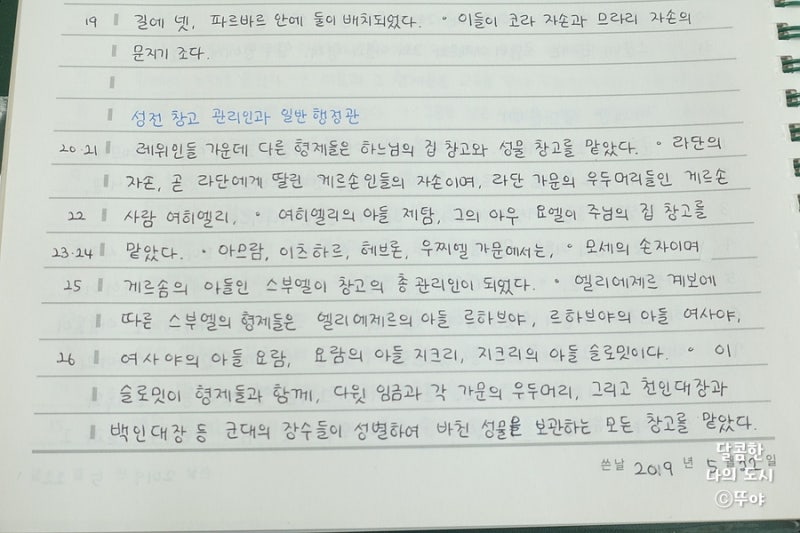 19 길에 넷, 파르바르 안에 둘이 배치되었다. ° 이들이 코라 자손과 므라리 자손의
문지기 조다.
성전 창고 관리인과 일반 행정관
20·21 레위인들 가운데 다른 형제들은 하느님의 집 창고와 성물 창고를 맡았다. ° 라단의
자손, 곧 라단에게 딸린 게르손인들의 자손이며, 라단 가문의 우두머리들인 게르손
22 사람 여히엘리, ° 여히엘리의 아들 제탐, 그의 아우 요엘이 주님의 집 창고를
23·24 맡았다. ° 아므람, 이츠하르, 헤브론, 우찌엘 가문에서는, ° 모세의 손자이며
25 게르솜의 아들인 스부엘이 창고의 총 관리인이 되었다. ° 엘리에제르 계보에
따른 스부엘의 형제들은 엘리에제르의 아들 르하브야, 르하브야의 아들 여사야,
26 여사야의 아들 요람, 요람의 아들 지크리, 지크리의 아들 슬로밋이다. ° 이
슬로밋이 형제들과 함께, 다윗 임금과 각 가문의 우두머리, 그리고 천인대장과
백인대장 등 군대의 장수들이 성별하여 바친 성물을 보관하는 모든 창고를 맡았다.
쓴날 2019 년 5 월 22 일
달콤한
나의 도시
ⓒ뚜야